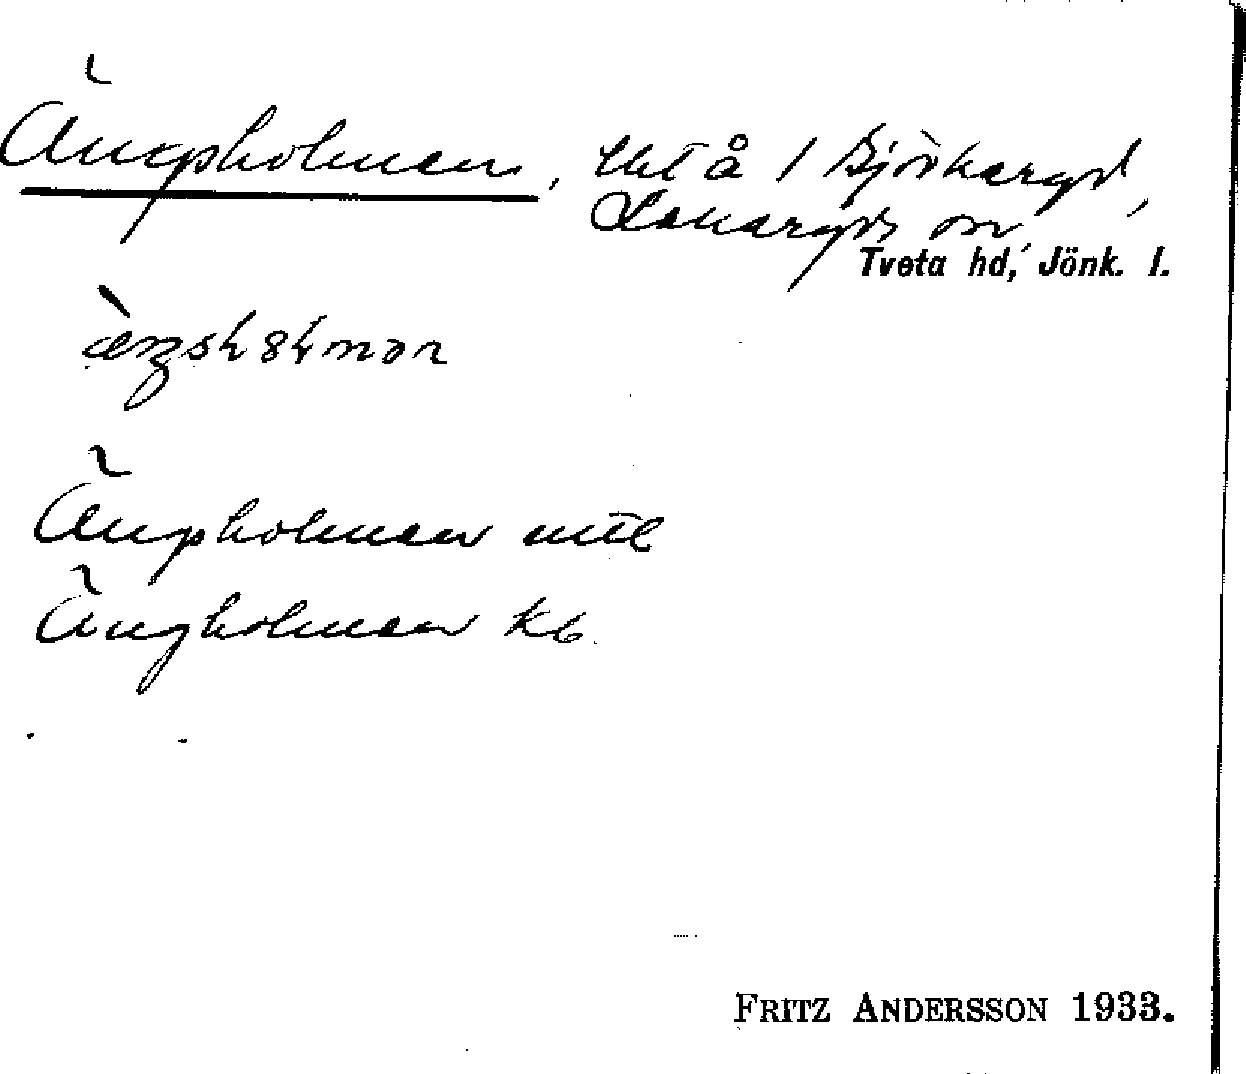 Ängsholmen, lht å 1 Björkeryd,
Lekeryds sn,
Tveta hd, Jönk. l.
Ängsholmen mtl
Ängholmen kb.
FRITZ ANDERSSON 1933.